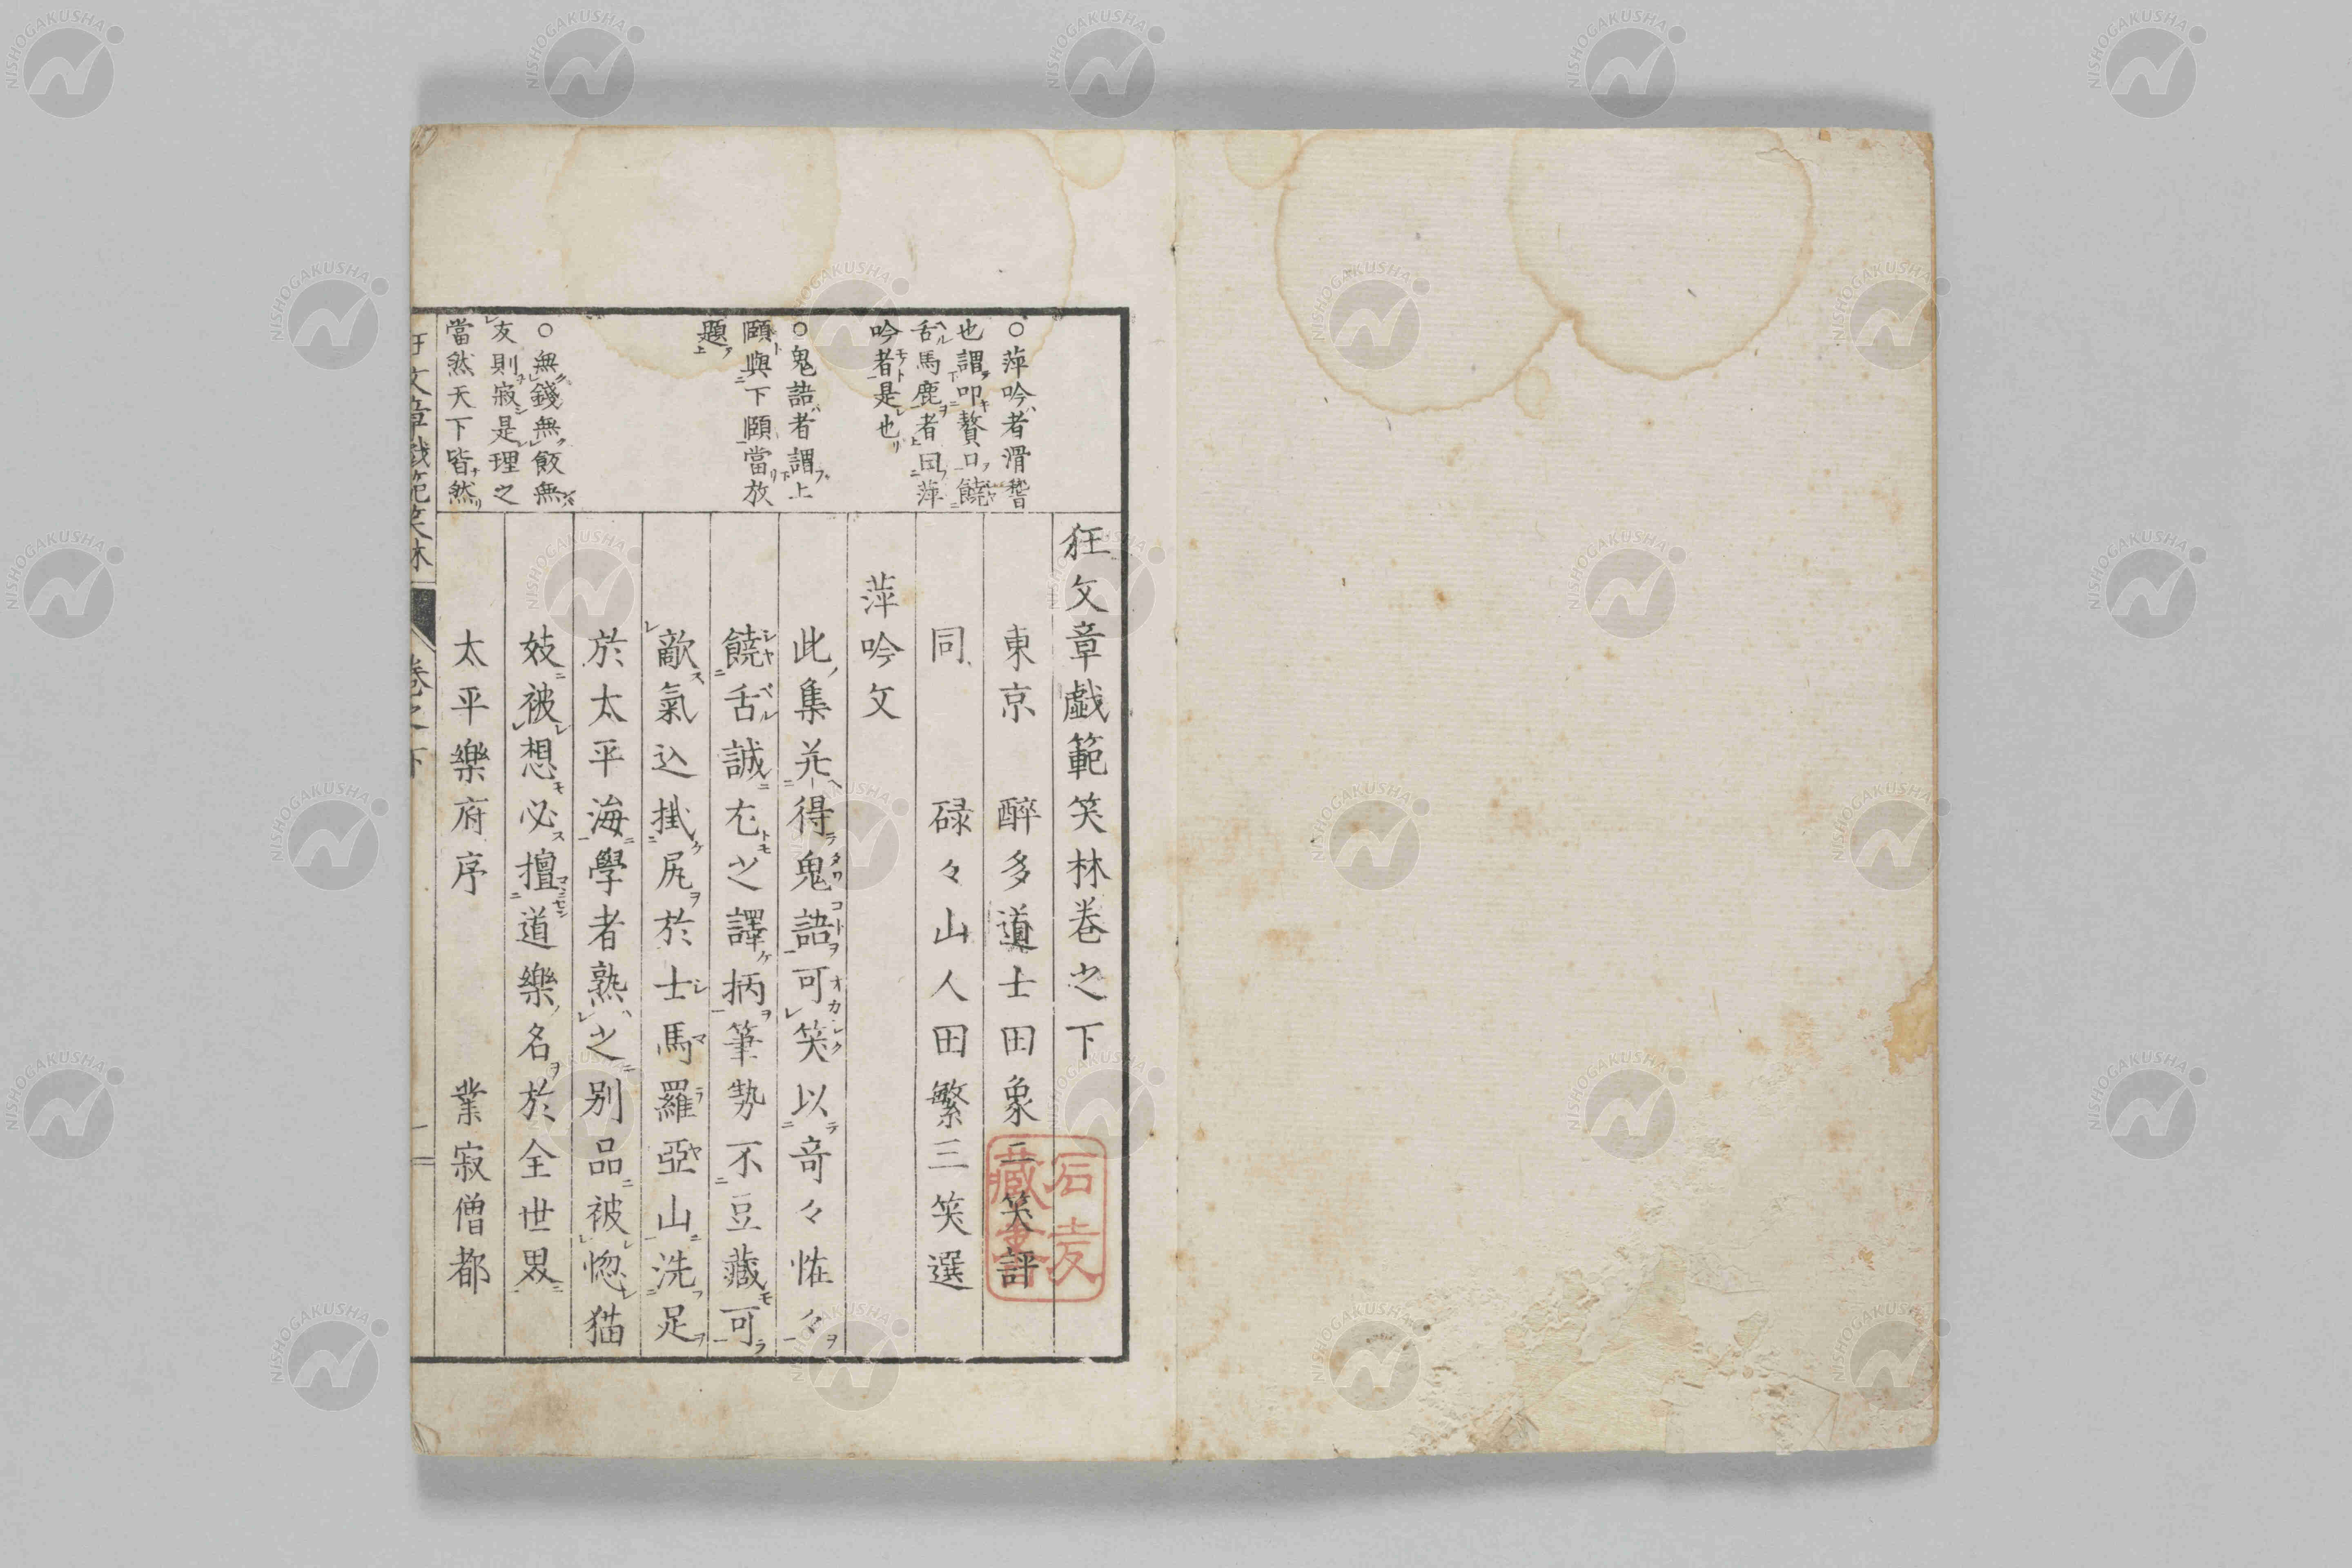 狂文章戯範笑林卷之下
東京 醉多道士田象二笑評
同 碌々山人田繁三笑選
萍吟文
此集并得鬼語可笑以竒々恠々
饒舌誠尢之譯柄筆勢不豆藏可
敵氣込掛尻於士馬羅亞山洗足
於太平海學者熟之别品被惚猫
妓被想必擅道樂名於全世畧
太平樂府序 業寂僧都
○萍吟者滑稽
也謂叩贅口饒
舌馬鹿者曰萍
吟者是也
○鬼語者謂上
頤與下頤當放
題
○無錢無飯無
友則寂是理之
當然天下皆然
石麦
藏書
NISHOGAKUSHA